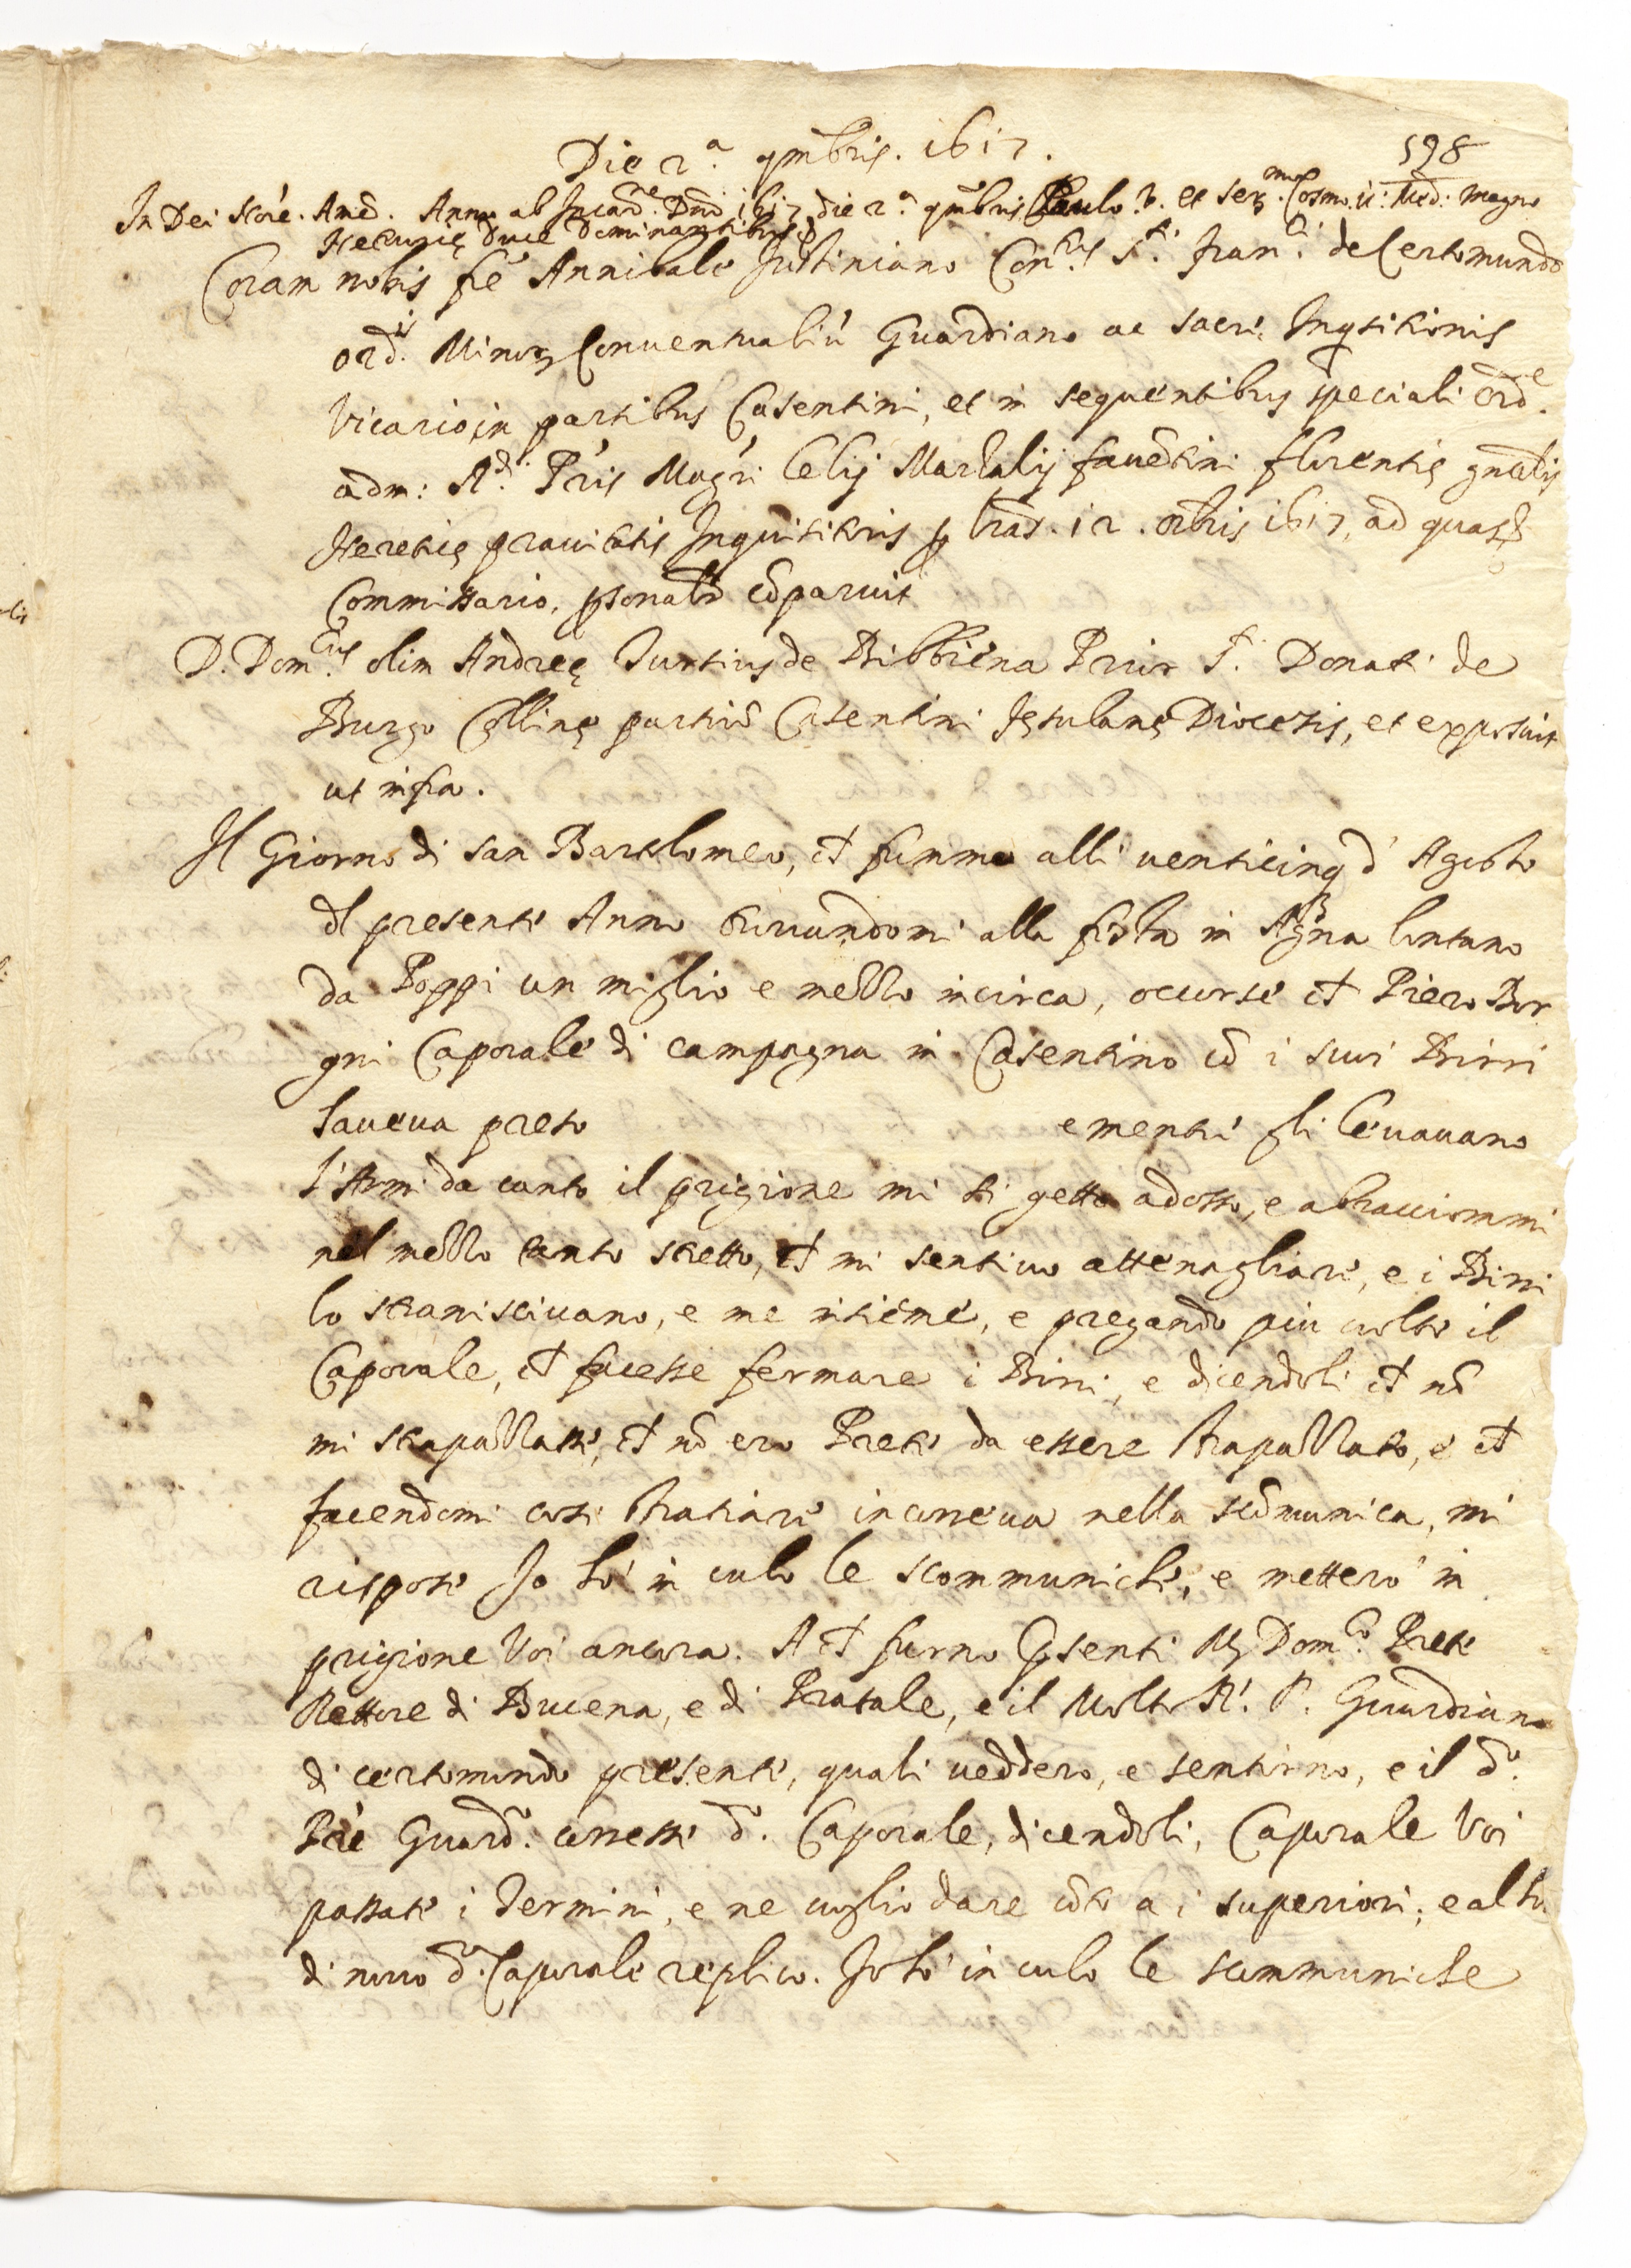 Die 2.ª 9mbris. 1617.
598
In Dei No͞ie. Ame͞. Anno ab Incar.ne D͞ni 1617 die 2.ª 9mbris Paulo. V. et Ser.mo Cosmo. ii: Med: magno
Hetrurię Duce dominantibus
Coram nobis fr͞e Annibale Justiniano Con.tus S.ti Fran.ci de Certomundo
ord.is Minor. Conventualiu͞ Guardiano ac sacrę Inq͞sitionis
Vicario in partibus Casentini, et in sequentibus speciali ord.e
adm: R.di P͞ris Mag͞ri Lelij Marzalij faue͞tini florentię gn͞alis
Hereticę prauitatis Inquisitoris p l͞ras. 12. 8bris 1617, ad quas &
Commissario, psonal͞r co͞paruit
D. Dom.cus olim Andreę Juntius de Bibbiena Prior S.ti Donati de
Burgo Collinę partiu͞ Casentini Fęsulanę Diocesis, et exposuit
ut infra.
Il Giorno di San Bartolomeo, ch fummo alli uenticinq d' Agosto
dl presente Anno trouandomi alla festa in Agna lontano
da Poppi un miglio e mezzo incirca, occorse ch Piero Bor
gni Caporale di campagna in Casentino co͞ i suoi Birri
haueua preso e mentre gli leuauano
l'Armi da canto il prigione mi si getto adosso, e abbracciommi
nel mezzo tanto stretto, ch mi sentiuo attenagliare, e i Birri
lo strascinauano, e me insieme, e pregando piu uolte il
Caporale, ch facesse fermare i Birri, e dicendoli ch no͞
mi strapazzasse, ch no͞ ero Prete da essere strapazzato, e ch
facendomi cosi stratiare incorreua nella sco͞munica, mi
rispose Io hò in culo le scommuniche, e metterò in
prigione Voi ancora. A ch furno p͞senti M. Dom.co Prete
Rettore di Bucena, e di Pratale, e il Molto R. P. Guardiano
di certomondo presente, quali ueddero, e sentirno, e il d.o
Pr͞e Guard. corresse d.o Caporale, dicendoli, Caporale Voi
passate i Termini, e ne uoglio dare co͞to a i superiori; e altro
di nuouo d.o Caporale replico. Io hò in culo le scommuniche